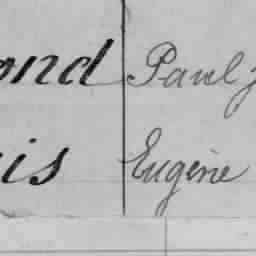 ond Paul J
is Eugène